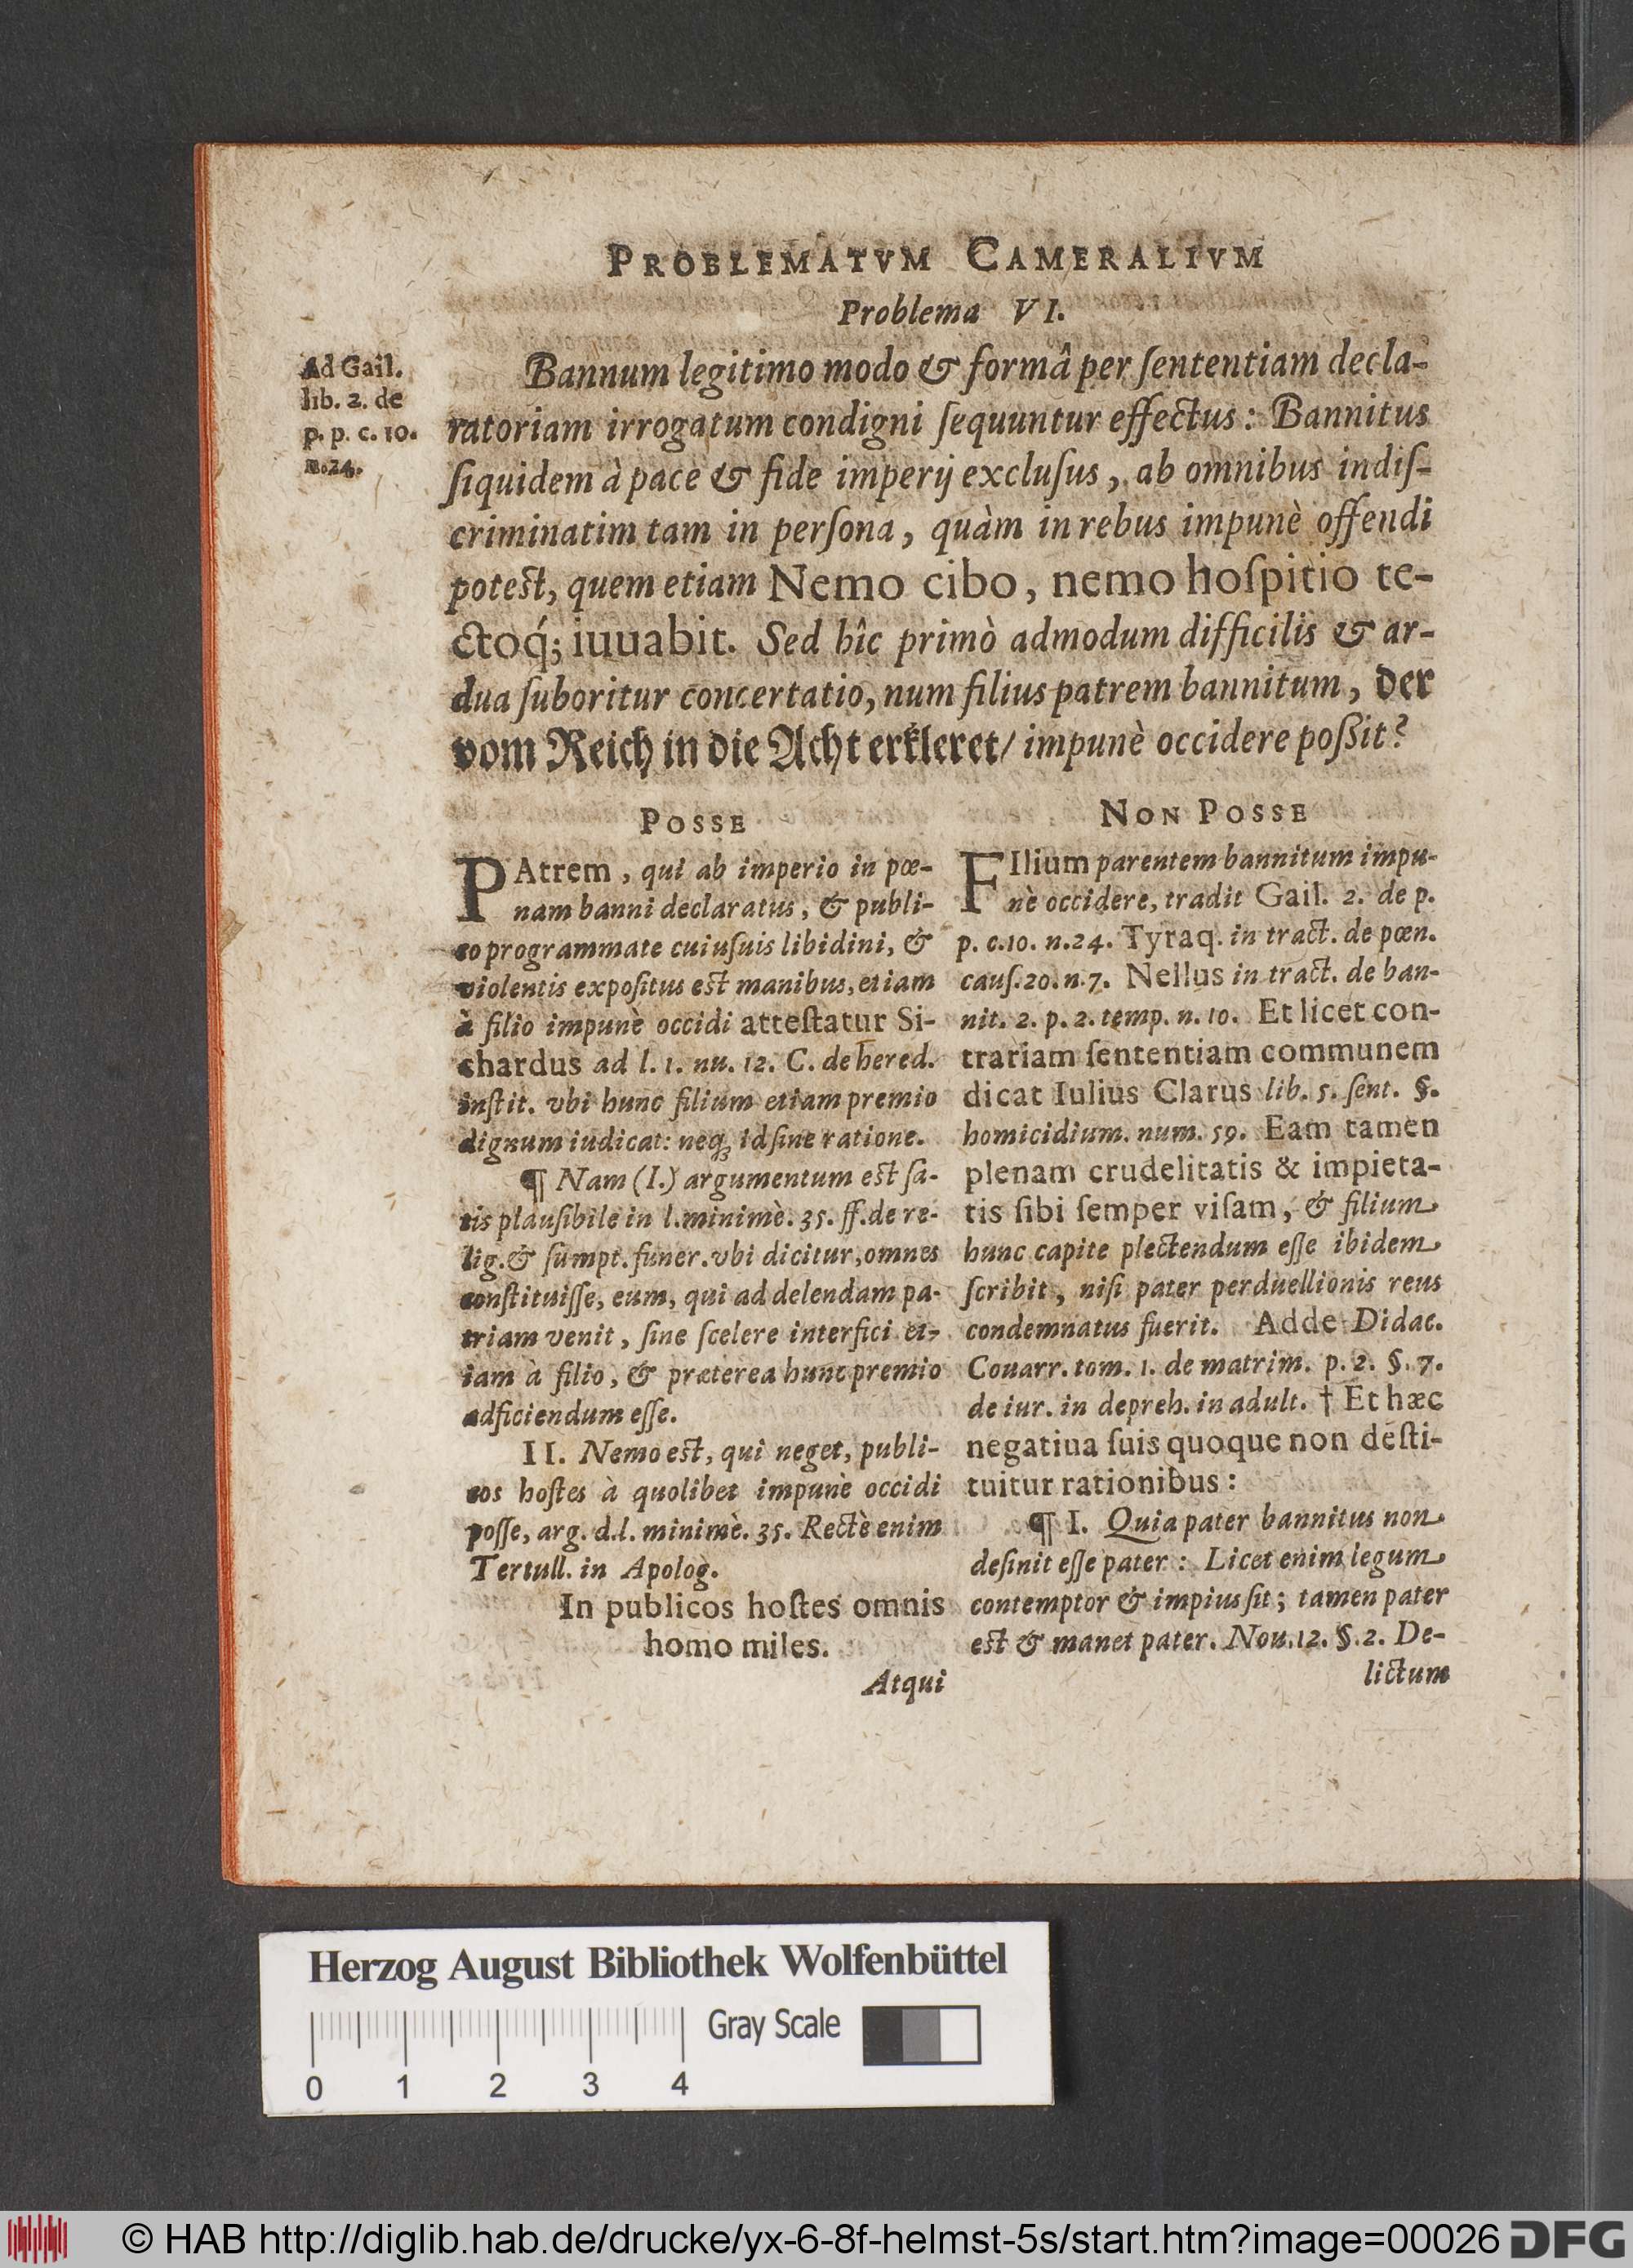 PROBLEMATVM CAMERALIVM
Problema VI.
Ad Gail.
lib. 2. de
p. p. c. 10.
n. 24.
Bannum legitimo modo & formâ per ſententiam decla-
ratoriam irrogatum condigni ſequuntur effectus: Bannitus
ſiquidem à pace & fide imperij excluſus, ab omnibus indiſ-
criminatim tam in perſona, quàm in rebus impunè offendi
potest, quem etiam Nemo cibo, nemo hoſpitio te-
ctoq́; iuuabit. Sed hîc primò admodum difficilis & ar-
dua ſuboritur concertatio, num filius patrem bannitum, der
vom Reich in die Acht erkleret/ impunè occidere poßit?
POSSE
PAtrem, qui ab imperio in pœ-
nam banni declaratus, & publi-
co programmate cuiuſuis libidini, &
violentis expoſitus est manibus, etiam
à filio impunè occidi atteſtatur Si-
chardus ad l. 1. nu. 12. C. de hered.
inſtit. vbi hunc filium etiam premio
dignum iudicat: neq; id ſine ratione.
¶ Nam (I.) argumentum est ſa-
tis plauſibile in l. minimè. 35. ff. de re-
lig. & ſumpt. funer. vbi dicitur, omnes
conſtituiſſe, eum, qui ad delendam pa-
triam venit, ſine ſcelere interfici et-
iam à filio, & præterea hunc premio
adficiendum eſſe.
II. Nemo est, qui neget, publi-
cos hoſtes à quolibet impunè occidi
poſſe, arg. d. l. minimè. 35. Rectè enim
Tertull. in Apolog.
In publicos hoſtes omnis
homo miles.
Atqui
NON POSSE
FIlium parentem bannitum impu-
nè occidere, tradit Gail. 2. de p.
p. c. 10. n. 24. Tyraq. in tract. de pœn.
cauſ. 20. n. 7. Nellus in tract. de ban-
nit. 2. p. 2. temp. n. 10. Et licet con-
trariam ſententiam communem
dicat Iulius Clarus lib. 5. ſent. §.
homicidium. num. 59. Eam tamen
plenam crudelitatis & impieta-
tis ſibi ſemper viſam, & filium
hunc capite plectendum eſſe ibidem
ſcribit, niſi pater perduellionis reus
condemnatus fuerit. Adde Didac.
Couarr. tom. 1. de matrim. p. 2. §. 7.
de iur. in depreh. in adult. † Et hæc
negatiua ſuis quoque non deſti-
tuitur rationibus:
¶ I. Quia pater bannitus non
deſinit eſſe pater: Licet enim legum
contemptor & impius ſit; tamen pater
est & manet pater. Nou. 12. §. 2. De-
lictum
Herzog August Bibliothek Wolfenbüttel
Gray Scale
0 1 2 3 4
© HAB http://diglib.hab.de/drucke/yx-6-8f-helmst-5s/start.htm?image=00026 DFG